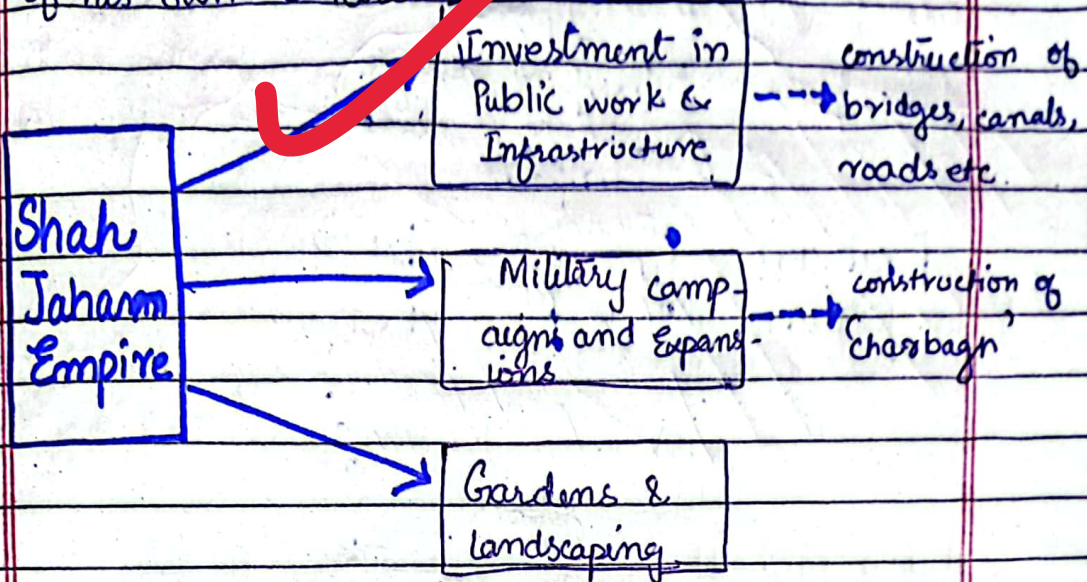 Shah
Jahann
Empire
Investment in
Public work &
Infrastructure
construction of
bridges, canals,
roads etc.
Military camp-
aigns and Expans-
ions
construction of
'Charbagh'
Gardens &
landscaping